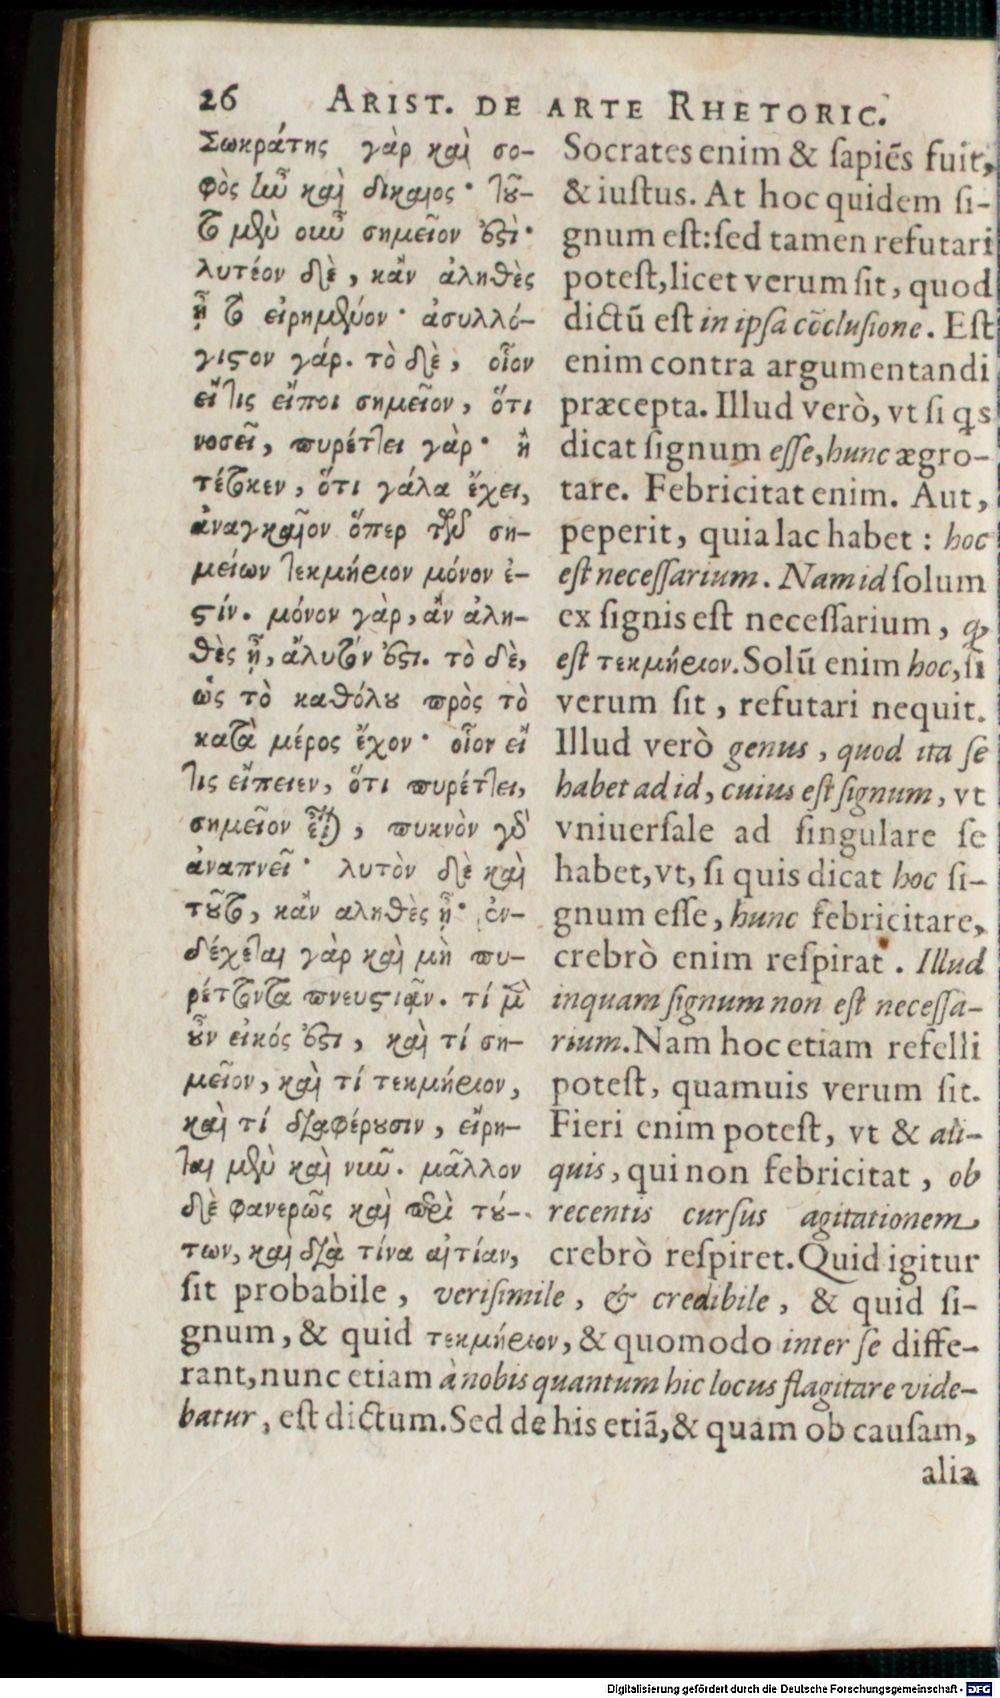 26 ARIST. DE ARTE RHETORIC.
Σωκράτης γὰρ καὶ σο-
φὸς ἦν καὶ δίκαιος· τοῦ-
το μὲν οὖν σημεῖον ἐστὶ·
λυτέον δὲ, κἂν ἀληθὲς
ᾖ τὸ εἰρημένον· ἀσυλλό-
γιστον γάρ. τὸ δὲ, οἷον
εἴ τις εἴποι σημεῖον, ὅτι
νοσεῖ, πυρέττει γὰρ· ἢ
τέτοκεν, ὅτι γάλα ἔχει,
ἀναγκαῖον ὅπερ τῶν ση-
μείων τεκμήριον μόνον ἐ-
στίν. μόνον γὰρ, ἂν ἀλη-
θὲς ᾖ, ἄλυτόν ἐστι. τὸ δὲ,
ὡς τὸ καθόλου πρὸς τὸ
κατὰ μέρος ἔχον· οἷον εἴ
τις εἴπειεν, ὅτι πυρέττει,
σημεῖον εἶναι, πυκνὸν γὰρ
ἀναπνεῖ· λυτὸν δὲ καὶ
τοῦτο, κἂν αληθὲς ᾖ· ἐν-
δέχεται γὰρ καὶ μὴ πυ-
ρέττοντα πνευστιᾶν. τί μὲν
οὖν εἰκός ἐστι, καὶ τί ση-
μεῖον, καὶ τί τεκμήριον,
καὶ τί διαφέρουσιν, εἴρη-
ται μὲν καὶ νῦν. μᾶλλον
δὲ φανερῶς καὶ περὶ τού-
των, καὶ διὰ τίνα αἰτίαν,
Socrates enim & ſapiẽs fuit,
& iuſtus. At hoc quidem ſi-
gnum eſt: ſed tamen refutari
poteſt, licet verum ſit, quod
dictũ eſt in ipſa cõcluſione. Eſt
enim contra argumentandi
præcepta. Illud verò, vt ſi qs
dicat ſignum eſſe, hunc ægro-
tare. Febricitat enim. Aut,
peperit, quia lac habet: hoc
eſt neceſſarium. Nam id ſolum
ex ſignis eſt neceſſarium, ꝙ
eſt τεκμήριον. Solũ enim hoc, ſi
verum ſit, refutari nequit.
Illud verò genus, quod ita ſe
habet ad id, cuius eſt ſignum, vt
vniuerſale ad ſingulare ſe
habet, vt, ſi quis dicat hoc ſi-
gnum eſſe, hunc febricitare,
crebrò enim reſpirat. Illud
inquam ſignum non eſt neceſſa-
rium. Nam hoc etiam refelli
poteſt, quamuis verum ſit.
Fieri enim poteſt, vt & ali-
quis, qui non febricitat, ob
recentis curſus agitationem
crebrò reſpiret. Quid igitur
ſit probabile, veriſimile, & credibile, & quid ſi-
gnum, & quid τεκμήριον, & quomodo inter ſe diffe-
rant, nunc etiam à nobis quantum hic locus flagitare vide-
batur, eſt dictum. Sed de his etiã, & quam ob cauſam,
alia
Digitalisierung gefördert durch die Deutsche Forschungsgemeinschaft - DFG